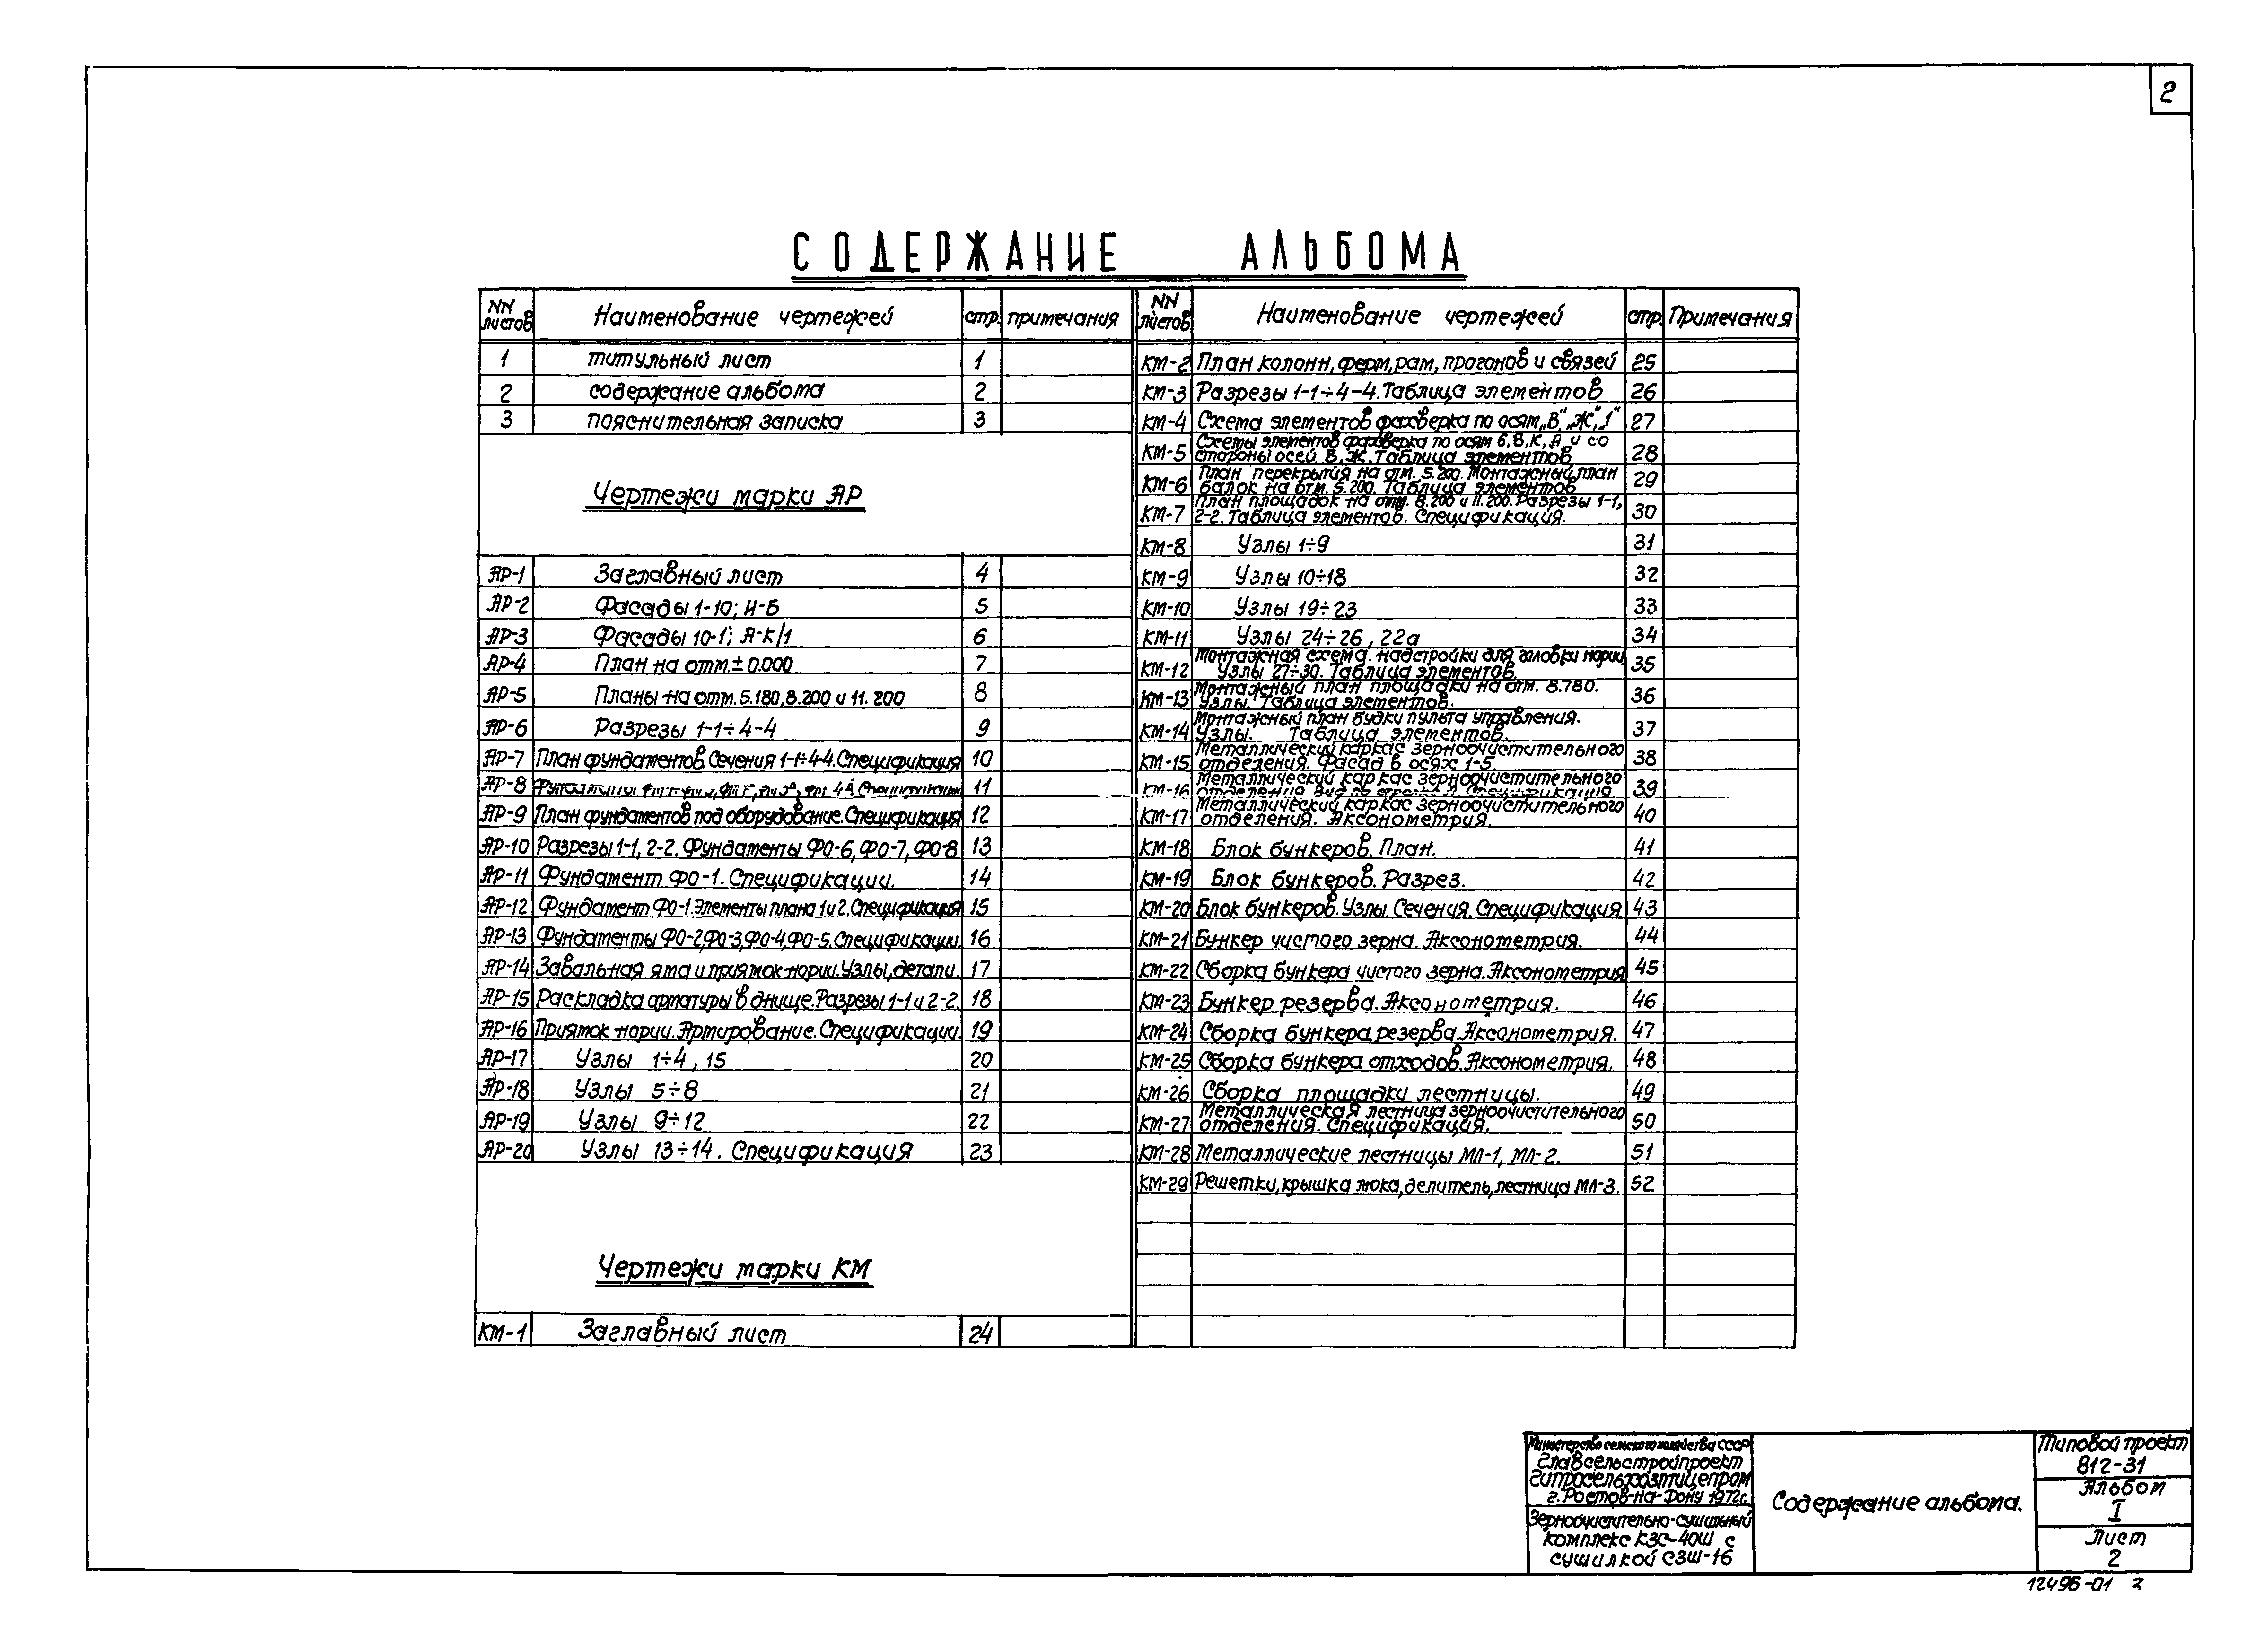 2
СОДЕРЖАНИЕ АЛЬБОМА
NN листов Наименование чертежей стр. примечания
1 титульный лист 1
2 содержание альбома 2
3 пояснительная записка 3
Чертежи марки АР
АР-1 Заглавный лист 4
АР-2 Фасады 1-10; И-Б 5
АР-3 Фасады 10-1; А-К/1 6
АР-4 План на отм. ± 0.000 7
АР-5 Планы на отм. 5.180, 8.200 и 11.200 8
АР-6 Разрезы 1-1÷4-4 9
АР-7 План фундаментов. Сечения 1-1÷4-4. Спецификация 10
АР-8 Спецификации 11
АР-9 План фундаментов под оборудование. Спецификация 12
АР-10 Разрезы 1-1, 2-2. Фундаменты ФО-6, ФО-7, ФО-8 13
АР-11 Фундамент ФО-1. Спецификации. 14
АР-12 Фундамент ФО-1. Элементы плана 1 и 2. Спецификация 15
АР-13 Фундаменты ФО-2, ФО-3, ФО-4, ФО-5. Спецификации. 16
АР-14 Завальная яма и приямок нории. Узлы, детали. 17
АР-15 Раскладка арматуры в днище. Разрезы 1-1 и 2-2. 18
АР-16 Приямок нории. Армирование. Спецификации. 19
АР-17 Узлы 1÷4, 15 20
АР-18 Узлы 5÷8 21
АР-19 Узлы 9÷12 22
АР-20 Узлы 13÷14. Спецификация 23
Чертежи марки КМ
КМ-1 Заглавный лист 24
NN листов Наименование чертежей стр. Примечания
КМ-2 План колонн, ферм, рам, прогонов и связей 25
КМ-3 Разрезы 1-1÷4-4. Таблица элементов 26
КМ-4 Схема элементов фахверка по осям „В", „Ж", „1" 27
КМ-5 Схемы элементов фахверка по осям 6, 8, К, А и со
стороны осей В, Ж. Таблица элементов 28
КМ-6 План перекрытия на отм. 5.200. Монтажный план
балок на отм. 5.200. Таблица элементов 29
КМ-7 План площадок на отм. 8.200 и 11.200. Разрезы 1-1,
2-2. Таблица элементов. Спецификация. 30
КМ-8 Узлы 1÷9 31
КМ-9 Узлы 10÷18 32
КМ-10 Узлы 19÷23 33
КМ-11 Узлы 24÷26, 22а 34
КМ-12 Монтажная схема. надстройки для головки нории
Узлы 27÷30. Таблица элементов. 35
КМ-13 Монтажный план площадки на отм. 8.780.
Узлы. Таблица элементов. 36
КМ-14 Монтажный план будки пульта управления.
Узлы. Таблица элементов. 37
КМ-15 Металлический каркас зерноочистительного
отделения. Фасад в осях 1-5. 38
КМ-16 Металлический каркас зерноочистительного
отделения. Вид по стрелке Спецификация 39
КМ-17 Металлический каркас зерноочистительного
отделения. Аксонометрия. 40
КМ-18 Блок бункеров. План. 41
КМ-19 Блок бункеров. Разрез. 42
КМ-20 Блок бункеров. Узлы. Сечения. Спецификация. 43
КМ-21 Бункер чистого зерна. Аксонометрия. 44
КМ-22 Сборка бункера чистого зерна. Аксонометрия 45
КМ-23 Бункер резерва. Аксонометрия. 46
КМ-24 Сборка бункера резерва. Аксонометрия. 47
КМ-25 Сборка бункера отходов. Аксонометрия. 48
КМ-26 Сборка площадки лестницы. 49
КМ-27 Металлическая лестница зерноочистительного
отделения. Спецификация. 50
КМ-28 Металлические лестницы МЛ-1, МЛ-2. 51
КМ-29 Решетки, крышка люка, делитель, лестница МЛ-3. 52
Министерство сельского хозяйства СССР
Главсельстройпроект
Гипросельхозптицепром
г. Ростов-на-Дону 1972г.
Зерноочистительно-сушильный
комплекс КЗС-40Ш с
сушилкой СЗШ-16
Содержание альбома.
Типовой проект
812-31
Альбом
I
Лист
2
12495-01 3